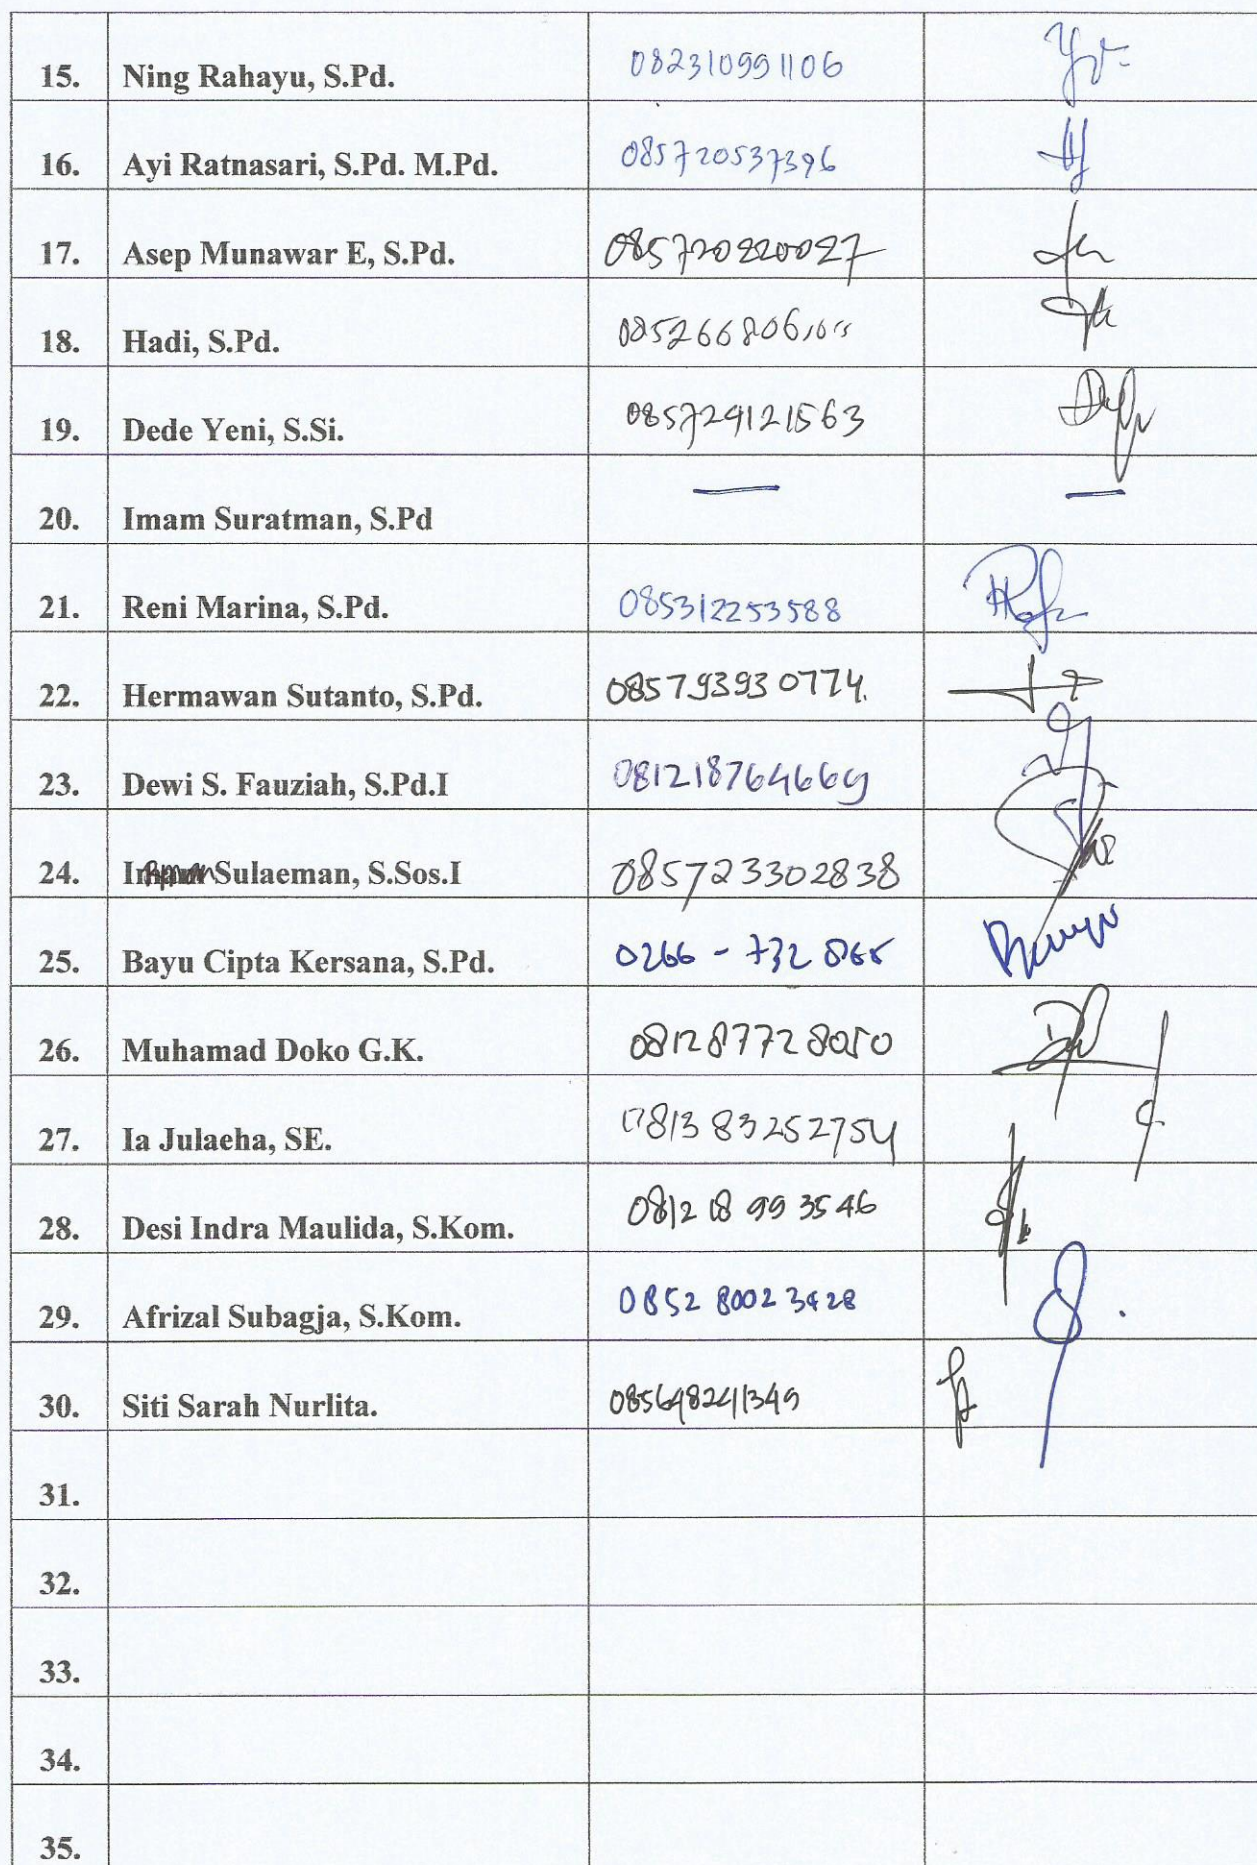 15. Ning Rahayu, S.Pd. 082310991106
16. Ayi Ratnasari, S.Pd. M.Pd. 085720537396
17. Asep Munawar E, S.Pd. 085720220027
18. Hadi, S.Pd.
19. Dede Yeni, S.Si. 085729121563
20. Imam Suratman, S.Pd — —
21. Reni Marina, S.Pd. 085312253588
22. Hermawan Sutanto, S.Pd. 085793930774.
23. Dewi S. Fauziah, S.Pd.I 081218764669
24. Sulaeman, S.Sos.I 085723302838
25. Bayu Cipta Kersana, S.Pd. 0266 - 732
26. Muhamad Doko G.K. 081287728050
27. Ia Julaeha, SE. 081383252754
28. Desi Indra Maulida, S.Kom. 0812 18 99 3546
29. Afrizal Subagja, S.Kom. 0852 8002 3428
30. Siti Sarah Nurlita. 085648241349
31.
32.
33.
34.
35.